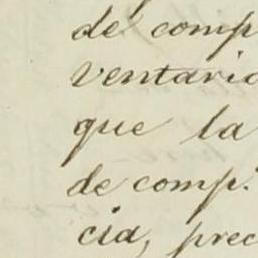 de comp
ventario
que la
de comp.
cia, prec